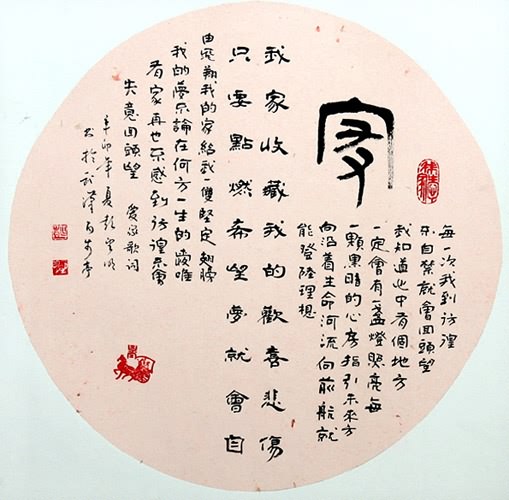 家
每一次我到彷徨
不自禁就會回頭望
我知道心中有個地方
一定會有一盞燈照亮每
一顆黑暗的心房指引未來方
向沿着生命河流向前航就
能登陸理想
我家收藏我的歡喜悲傷
只要點燃希望夢就會自
由飛翔我的家給我一雙堅定翅膀
我的夢不論在何方一生的愛唯
有家再也不感到彷徨不會
失意回頭望 愛家歌詞
辛卯年夏彭明
書於武漢百步亭